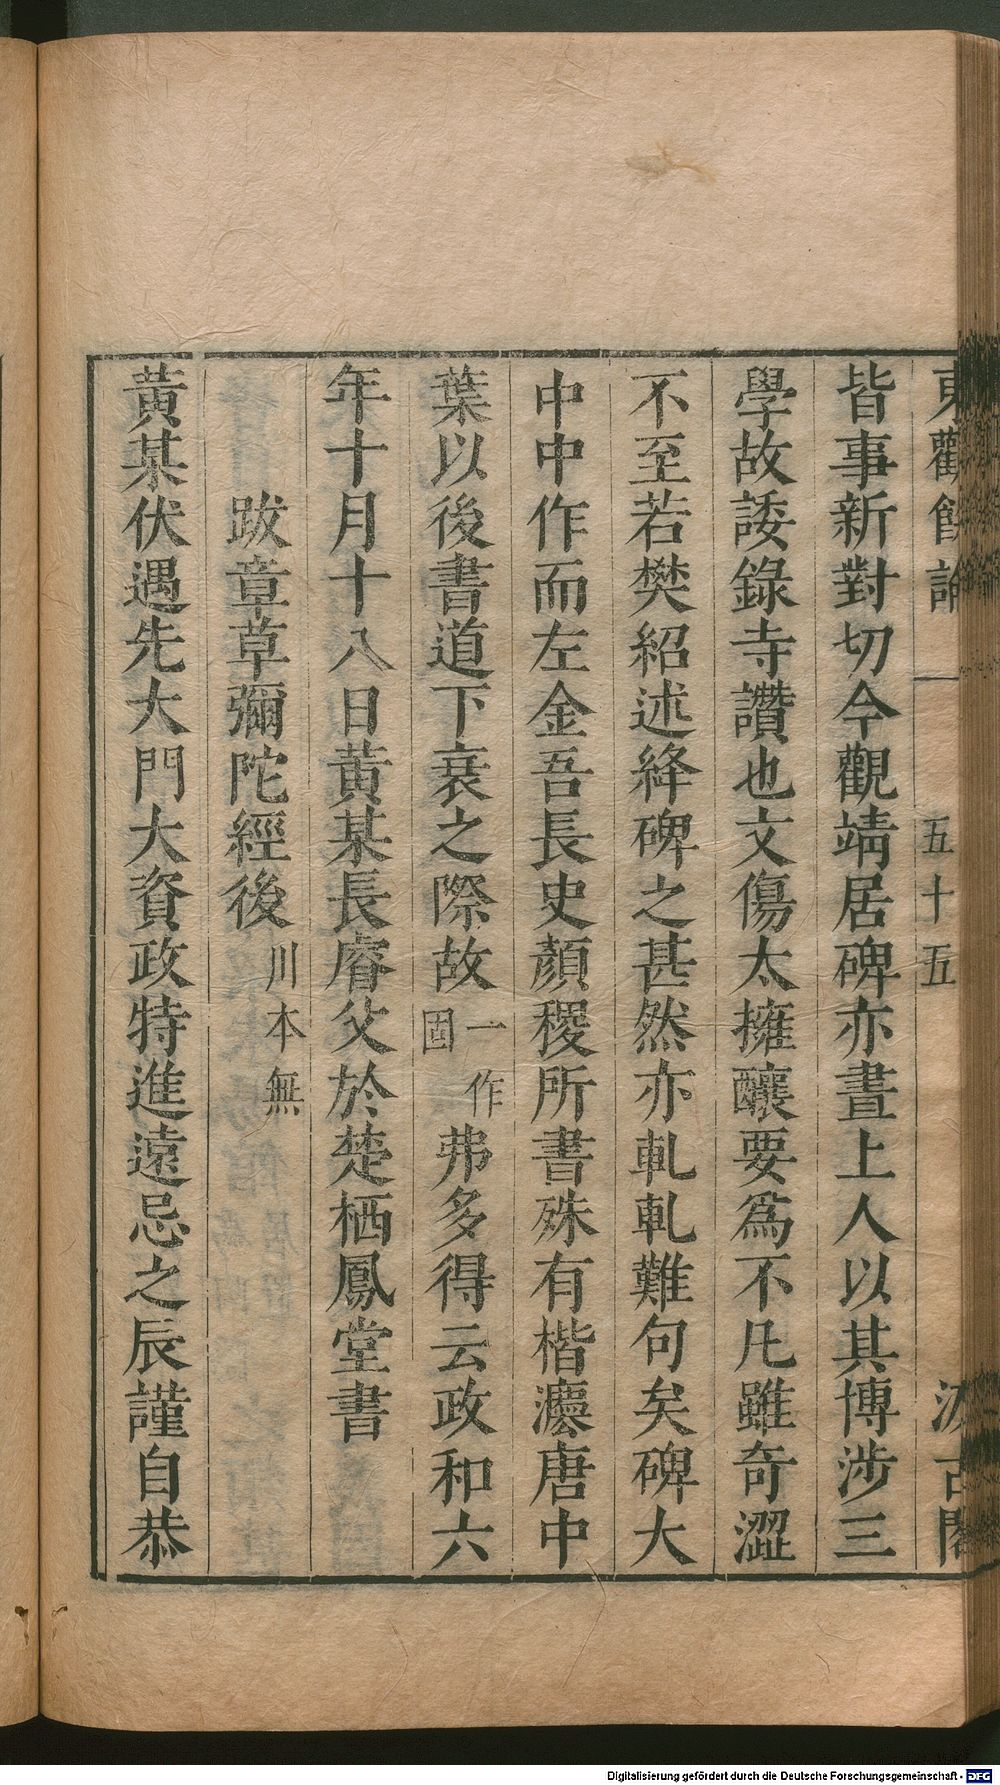 東觀餘論 五十五 汲古閣
皆事新對切今觀靖居碑亦晝上人以其博涉三
學故諉錄寺讚也文傷太擁釀要爲不凡雖奇澀
不至若樊紹述絳碑之甚然亦軋軋難句矣碑大
中中作而左金吾長史顏稷所書殊有楷灋唐中
葉以後書道下衰之際故一作固弗多得云政和六
年十月十八日黃某長睿父於楚栖鳳堂書
跋章草彌陀經後川本無
黃某伏遇先大門大資政特進遠忌之辰謹自恭
Digitalisierung gefördert durch die Deutsche Forschungsgemeinschaft - DFG